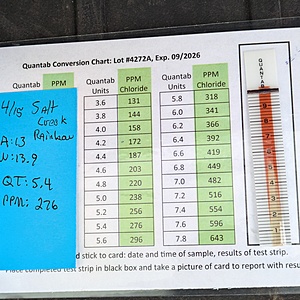 Quantab Conversion Chart: Lot #4272A, Exp. 09/2026
4/15 Salt
Creek
Rainbow
A: 13
W: 13.9
QT: 5.4
PPM: 276
Quantab PPM Quantab PPM
Units Chloride Units Chloride
3.6 131 5.8 318
3.8 144 6.0 341
4.0 158 6.2 366
4.2 172 6.4 392
4.4 187 6.6 419
4.6 203 6.8 449
4.8 220 7.0 482
5.0 238 7.2 516
5.2 256 7.4 554
5.4 276 7.6 597
5.6 296 7.8 643
QUANTAB
9
8
7
6
5
4
3
2
1
d stick to card: date and time of sample, results of test strip.
Place completed test strip in black box and take a picture of card to report with resu